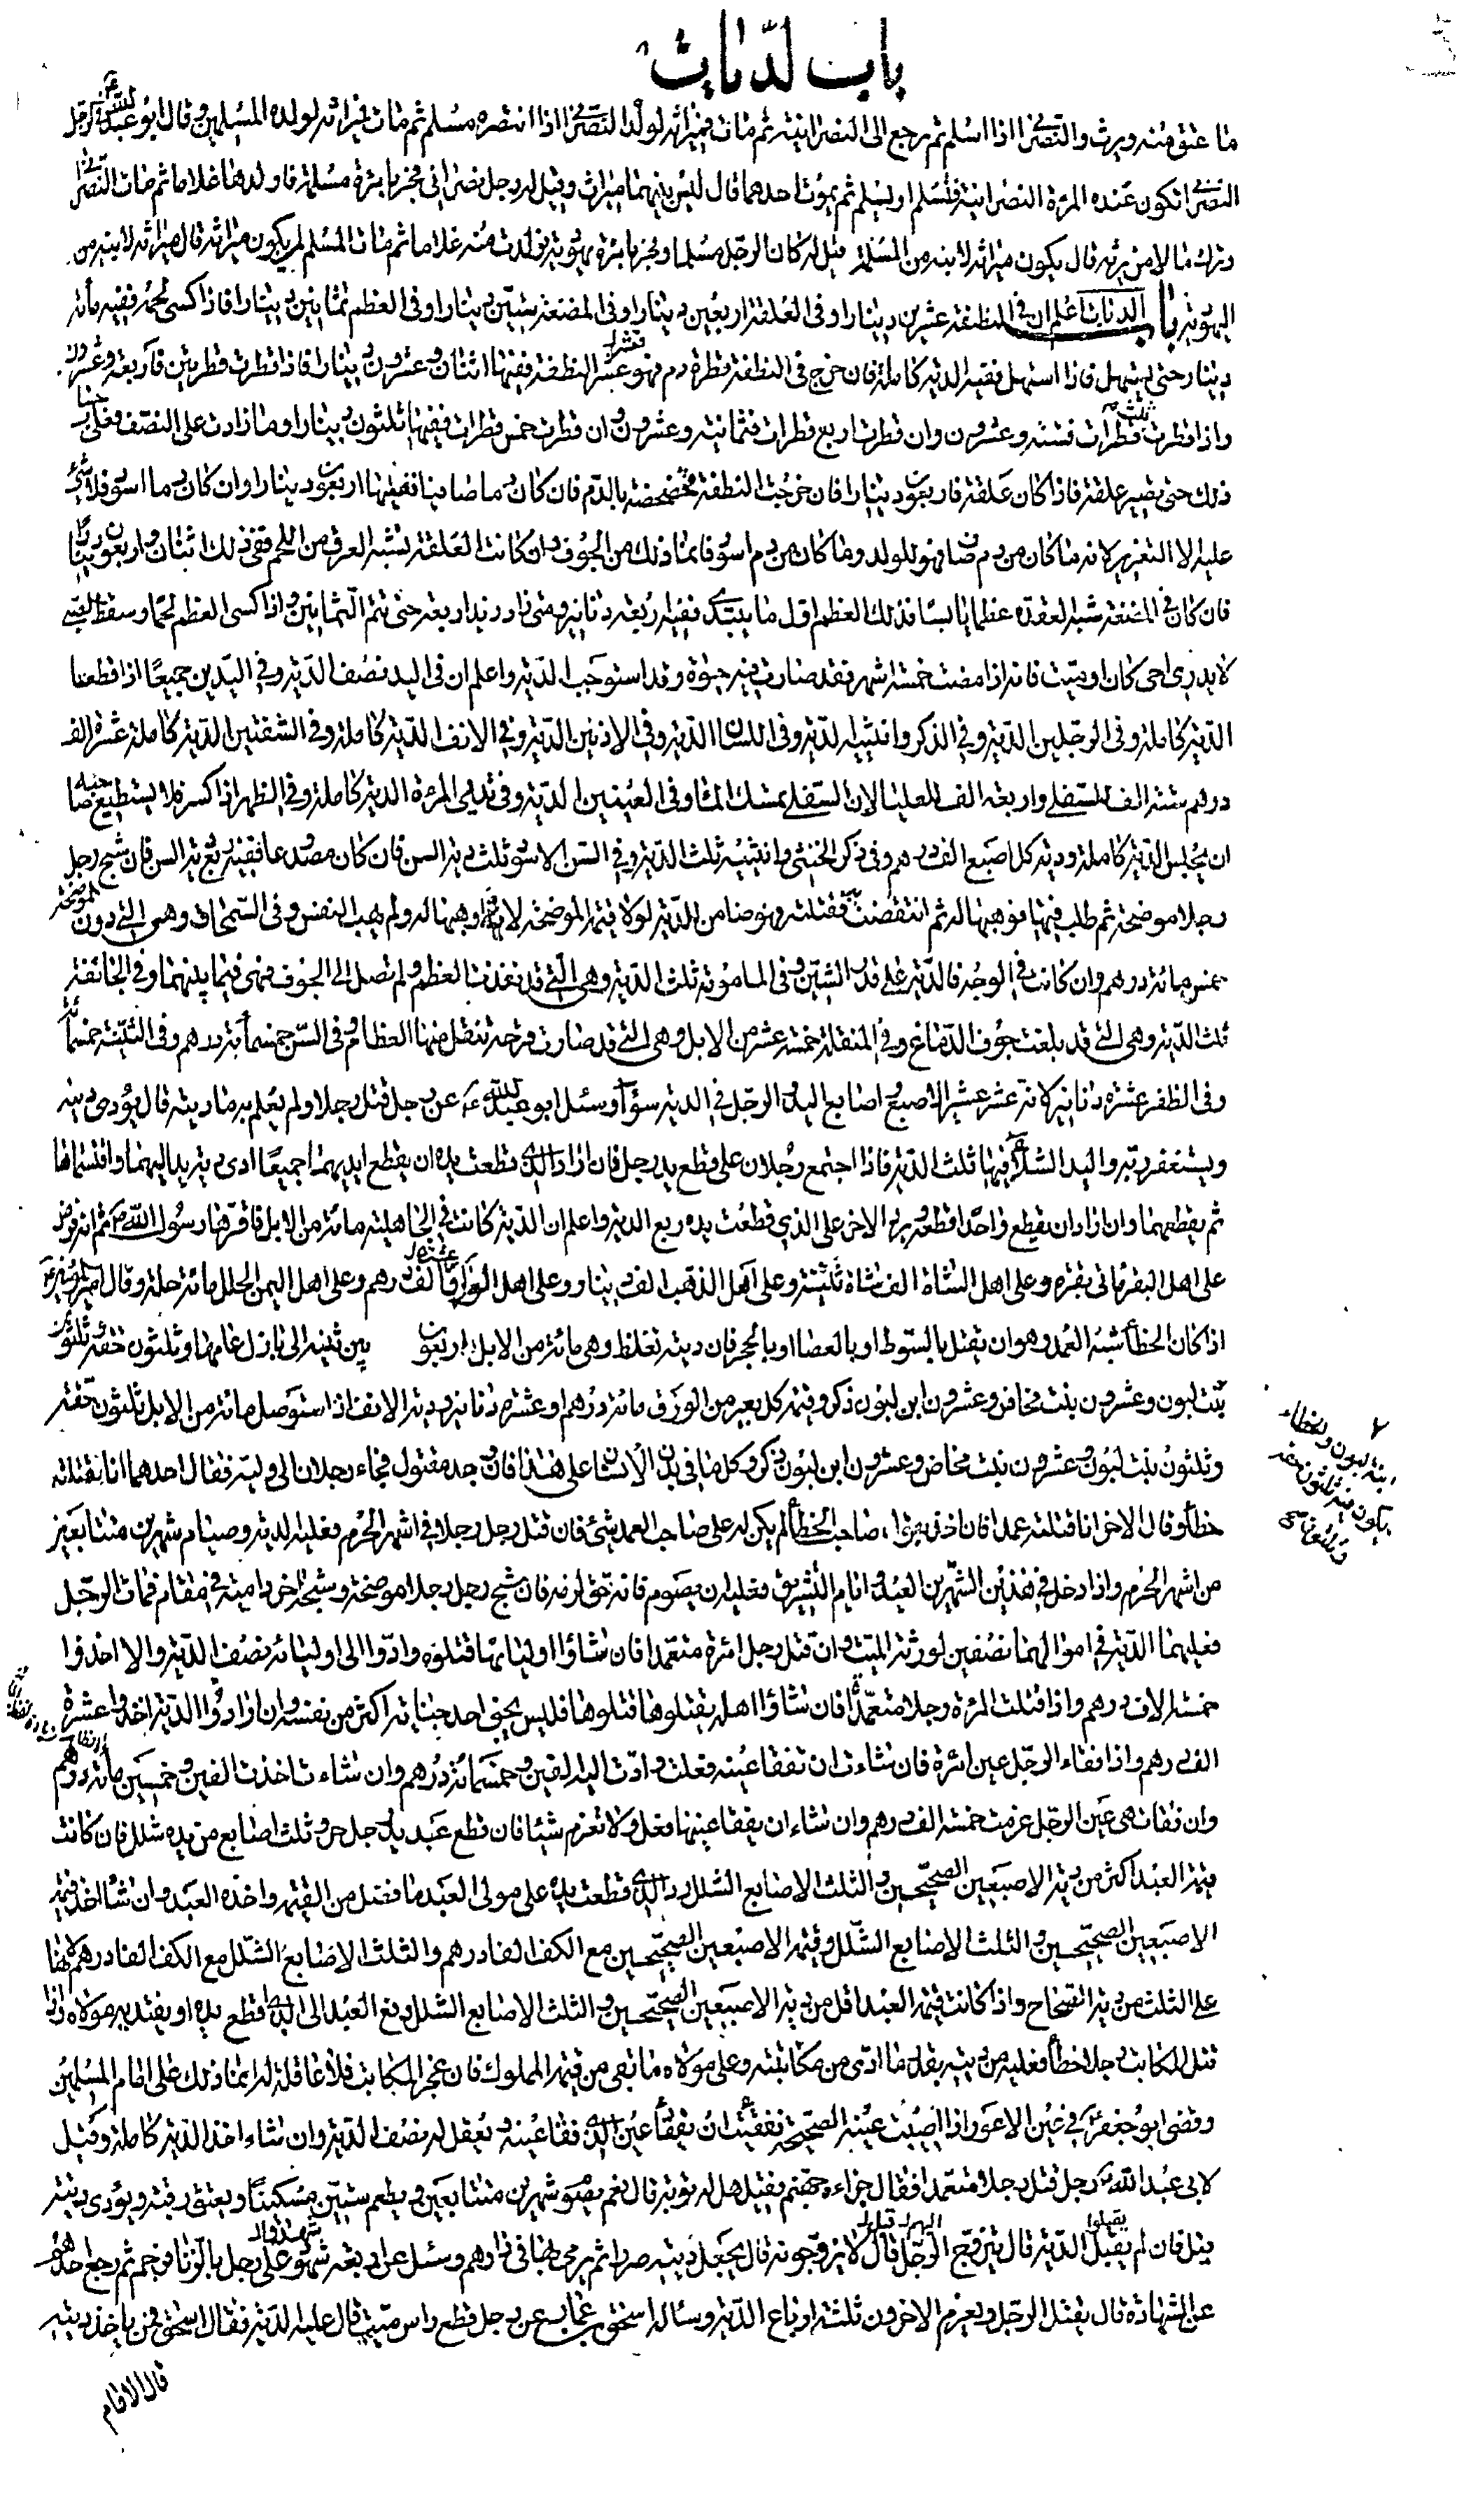 باب الديات
ما عتق منه ويرث والنصراني اذا اسلم ثم رجع الى النصرانية ثم مات فميراثه لولده النصراني اذا تنصر مسلم ثم مات فميراثه لولده المسلمين وقال ابو عبدالله في الرجل
النصراني تكون عنده المرءة النصرانية فتسلم او يسلم ثم يموت احدهما قال ليس بينهما ميراث وقيل له رجل نصراني فجر بامرءة مسلمة فاولدها غلاما ثم مات النصراني
وترك مالا من يرثه قال يكون ميراثه لابنه من المسلمة قيل له كان الرجل مسلما وفجر بامرءة يهودية فولدت منه غلاما ثم مات المسلم لمن يكون ميراثه قال ميراثه لابنه من
اليهودية باب الديات اعلم ان في النطفة عشرين دينارا وفي العلقة اربعين دينارا وفي المضغة ستين دينارا وفي العظم ثمانين دينارا فاذا كسى لحم ففيه مائة
دينار حتى يستهل فاذا استهل ففيه الدية كاملة فان خرج في النطفة قطرة دم فهو عشر النطفة ففيها اثنان وعشرون دينارا فاذا قطرت قطرتين فاربعة وعشرون
واذا قطرت ثلث قطرات فستة وعشرون وان قطرت اربع قطرات فثمانية وعشرون وان قطرت خمس قطرات ففيها ثلثون دينارا وما زادت على النصف فعلى حساب
ذلك حتى يصير علقة فاذا كان علقة فاربعون دينارا فان خرجت النطفة مخضخضة بالدم فان كان دما صافيا ففيها اربعون دينارا وان كان دما اسود فلا شئ
عليه الا التعزير لانه ما كان من دم صاف فهو للولد وما كان من دم اسود فانما ذلك من الجوف وان كانت العلقة تشبه العرق من اللحم ففي ذلك اثنان واربعون دينارا
فان كان في المضغة شبه العقدة عظما يابسا فذلك العظم اول ما يبتدى ففيه اربعة دنانير ومتى زاد زيد اربعة حتى تتم الثمانين واذا كسى العظم لحما وسقط الصبي
لا يدرى احى كان او ميت فانه اذا مضت خمسة اشهر فقد صارت فيه حيوة وقد استوجب الدية واعلم ان في اليد نصف الدية وفي اليدين جميعا اذا قطعتا
الدية كاملة وفي الرجلين الدية وفي الذكر وانثييه الدية وفي اللسان الدية وفي الاذنين الدية وفي الانف الدية كاملة وفي الشفتين الدية كاملة عشرة الف
درهم ستة الف للسفلى واربعة الف للعليا لان السفلى تمسك الماء وفي العينين الدية وفي ثديي المرءة الدية كاملة وفي الظهر اذا كسر فلا يستطيع صاحبه
ان يجلس الدية كاملة ودية كل اصبع الف درهم وفي ذكر الخنثى وانثييه ثلث الدية وفي السن الاسود ثلث دية السن فان كان مصدعا ففيه ربع دية السن فان شج رجل
رجلا موضحة ثم طلب فيها فوهبها له ثم انتقضت به فقتلته فهو ضامن للدية لولا قيمة الموضحة لانه وهبها له ولم يهب النفس وفي السمحاق وهي التي دون الموضحة
خمس مائة درهم وان كانت في الوجه فالدية على قدر الشين وفي المامومة ثلث الدية وهي التي قد نفذت العظم ولم تصل الى الجوف فهي فيما بينهما وفي الجائفة
ثلث الدية وهي التي قد بلغت جوف الدماغ وفي المنقلة خمسة عشر من الابل وهي التي قد صارت قرحة تنقل منها العظام وفي السن خمسمائة درهم وفي الثنية خمسمائة
وفي الظفر عشرة دنانير لانه عشر عشير الاصبع واصابع اليد والرجل في الدية سواء وسئل ابو عبدالله عن رجل قتل رجلا ولم يعلم به ما ديته قال يؤدي ديته
ويستغفر ربه واليد الشلاء فيها ثلث الدية فاذا اجتمع رجلان على قطع يد رجل فان اراد الذي قطعت يده ان يقطع ايديهما جميعا ادى دية يد اليهما واقتسماها
ثم يقطعهما وان اراد ان يقطع واحدا قطعه ويرد الاخر على الذي قطعت يده ربع الدية واعلم ان الدية كانت في الجاهلية مائة من الابل فاقرها رسول الله ثم انه فرض
على اهل البقر مأتي بقرة وعلى اهل الشاة الف شاة ثنية وعلى اهل الذهب الف دينار وعلى اهل الورق عشرة الف درهم وعلى اهل اليمن الحلل مائة حلة وقال امير المؤمنين
اذا كان الخطأ شبه العمد وهو ان يقتل بالسوط او بالعصا او بالحجر فان ديته تغلظ وهي مائة من الابل اربعون بين ثنية الى بازل عامها وثلثون حقة وثلثون
بنت لبون وعشرون بنت مخاض وعشرون ابن لبون ذكر وقيمة كل بعير من الورق مائة درهم او عشرة دنانير ودية الانف اذا استوصل مائة من الابل ثلثون حقة
وثلثون بنت لبون وعشرون بنت مخاض وعشرون ابن لبون ذكر وكل ما في بدن الانسان على هذا فان وجد مقتول فجاء رجلان الى وليه فقال احدهما انا قتلته
خطأ وقال الاخر انا قتلته عمدا فان اخذ بقول صاحب الخطأ لم يكن له على صاحب العمد شئ فان قتل رجل رجلا في اشهر الحرم فعليه الدية وصيام شهرين متتابعين
من اشهر الحرم واذا دخل في هذين الشهرين العيد وايام التشريق فعليه ان يصوم فانه حق لزمه فان شج رجل رجلا موضحة وشجه اخر دامية في مقام فمات الرجل
فعليهما الدية في اموالهما نصفين لورثة الميت وان قتل رجل امرءة متعمدا فان شاؤا اوليائها قتلوه وادوا الى اوليائه نصف الدية والا اخذوا
خمسة الاف درهم واذا قتلت المرءة رجلا متعمدا فان شاؤا اهله يقتلوها قتلوها فليس يجنى احد جناية اكثر من نفسه وان ارادوا الدية اخذوا عشرة
الف درهم واذا فقاء الرجل عين امرءة فان شاءت ان تفقا عينه فعلت وادت اليه الفين وخمسمائة درهم وان شاءت اخذت الفين وخمسين مائة درهم
وان فقات هي عين الرجل غرمت خمسة الف درهم وان شاء ان يفقا عينها فعل ولا تغرم شيئا فان قطع عبد يد رجل حر وثلث اصابع من يده شلل فان كانت
قيمة العبد اكثر من دية الاصبعين الصحيحين والثلث الاصابع الشلل رد الذي قطعت يده على مولى العبد ما فضل من القيمة واخذ العبد وان شاء اخذ قيمة
الاصبعين الصحيحين والثلث الاصابع الشلل وقيمة الاصبعين الصحيحين مع الكف الفا درهم والثلث الاصابع الشلل مع الكف الفا درهم لانها
على الثلث من دية الصحاح واذا كانت قيمة العبد اقل من دية الاصبعين الصحيحين والثلث الاصابع الشلل دفع العبد الى الذي قطع يده او يفتديه مولاه واذا
قتل المكاتب رجلا خطأ فعليه من ديته بقدر ما ادى من مكاتبته وعلى مولاه ما بقى من قيمة المملوك فان عجز المكاتب فلا عاقلة له انما ذلك على امام المسلمين
وقضى ابو جعفر في عين الاعور اذا اصيبت عينه الصحيحة ففقئت ان يفقأ عين الذي فقا عينه ويعقل له نصف الدية وان شاء اخذ الدية كاملة وقيل
لابي عبدالله رجل قتل رجلا متعمدا فقال جزاءه جهنم فقيل هل له توبة قال نعم يصوم شهرين متتابعين ويطعم ستين مسكينا ويعتق رقبة ويؤدي ديته
قيل فان لم يقبلوا الدية قال يتزوج اليهم قيل لا يزوجونه قال يجعل ديته صررا ثم يرمى بها في دارهم وسئل عن اربعة شهدوا على رجل بالزنا فرجم ثم رجع احدهم
عن الشهادة قال يقتل الرجل ويغرم الاخرون ثلثة ارباع الدية وسئاله اسحق بن عمار عن رجل قطع راس ميت قال عليه الدية فقال اسحق فمن ياخذ ديته
قال الامام
ابنة لبون والخطاء
يكون فيه ثلثون حقة